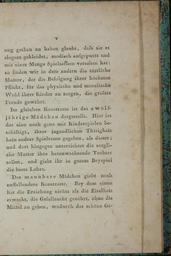 v
nug gethan zu haben glaubt, daß sie es
elegant gekleidet, modisch aufgeputzt und
mit einer Menge Spielsachen versehen hat:
so finden wir in dem andern die zärtliche
Mutter, der die Befolgung ihrer höchsten
Pflicht, für das physische und moralische
Wohl ihrer Kinder zu sorgen, die größte
Freude gewährt.
Im gleichen Kontraste ist das zwölf-
jährige Mädchen dargestellt. Hier ist
das eine noch ganz mit Kinderspielen be-
schäftigt, ihrer jugendlichen Thätigkeit
kein andrer Spielraum gegeben, als dieser;
und dort hingegen unterrichtet die sorgfäl-
tige Mutter ihre heranwachsende Tochter
selbst, und giebt ihr in ganzem Beyspiel
die beste Lehre.
Das mannbare Mädchen giebt noch
auffallendere Kontraste. Bey dem einen
hat die Erziehung nichts als die Eitelkeit
erweckt, die Gefallsucht genährt, ohne die
Mittel zu geben, wodurch der schöne Ge-